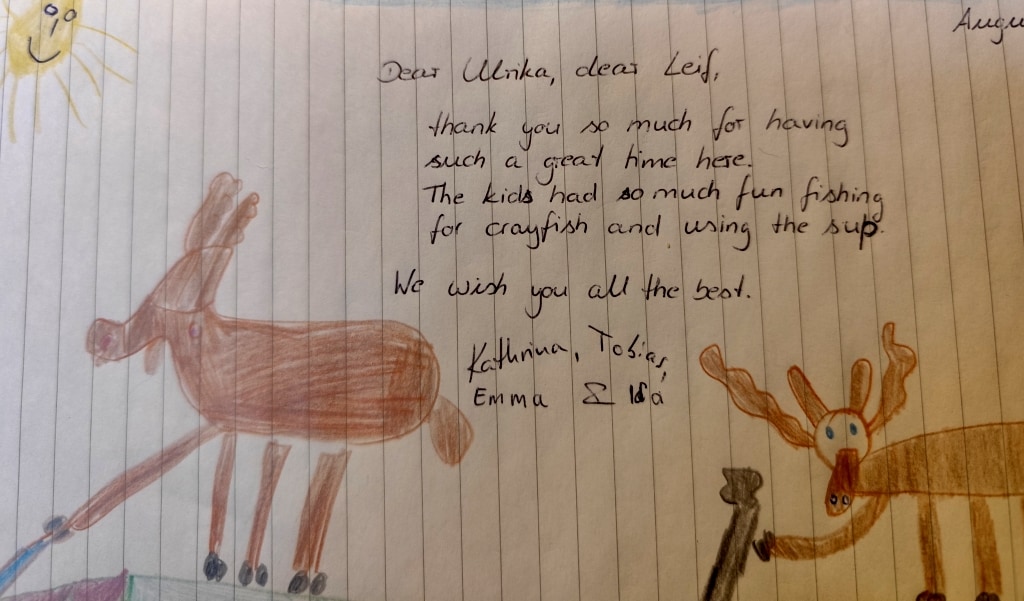 Augu
Dear Ulrika, dear Leif,
thank you so much for having
such a great time here.
The kids had so much fun fishing
for crayfish and using the sup.
We wish you all the best.
Kathrina, Tobias,
Emma & Ida